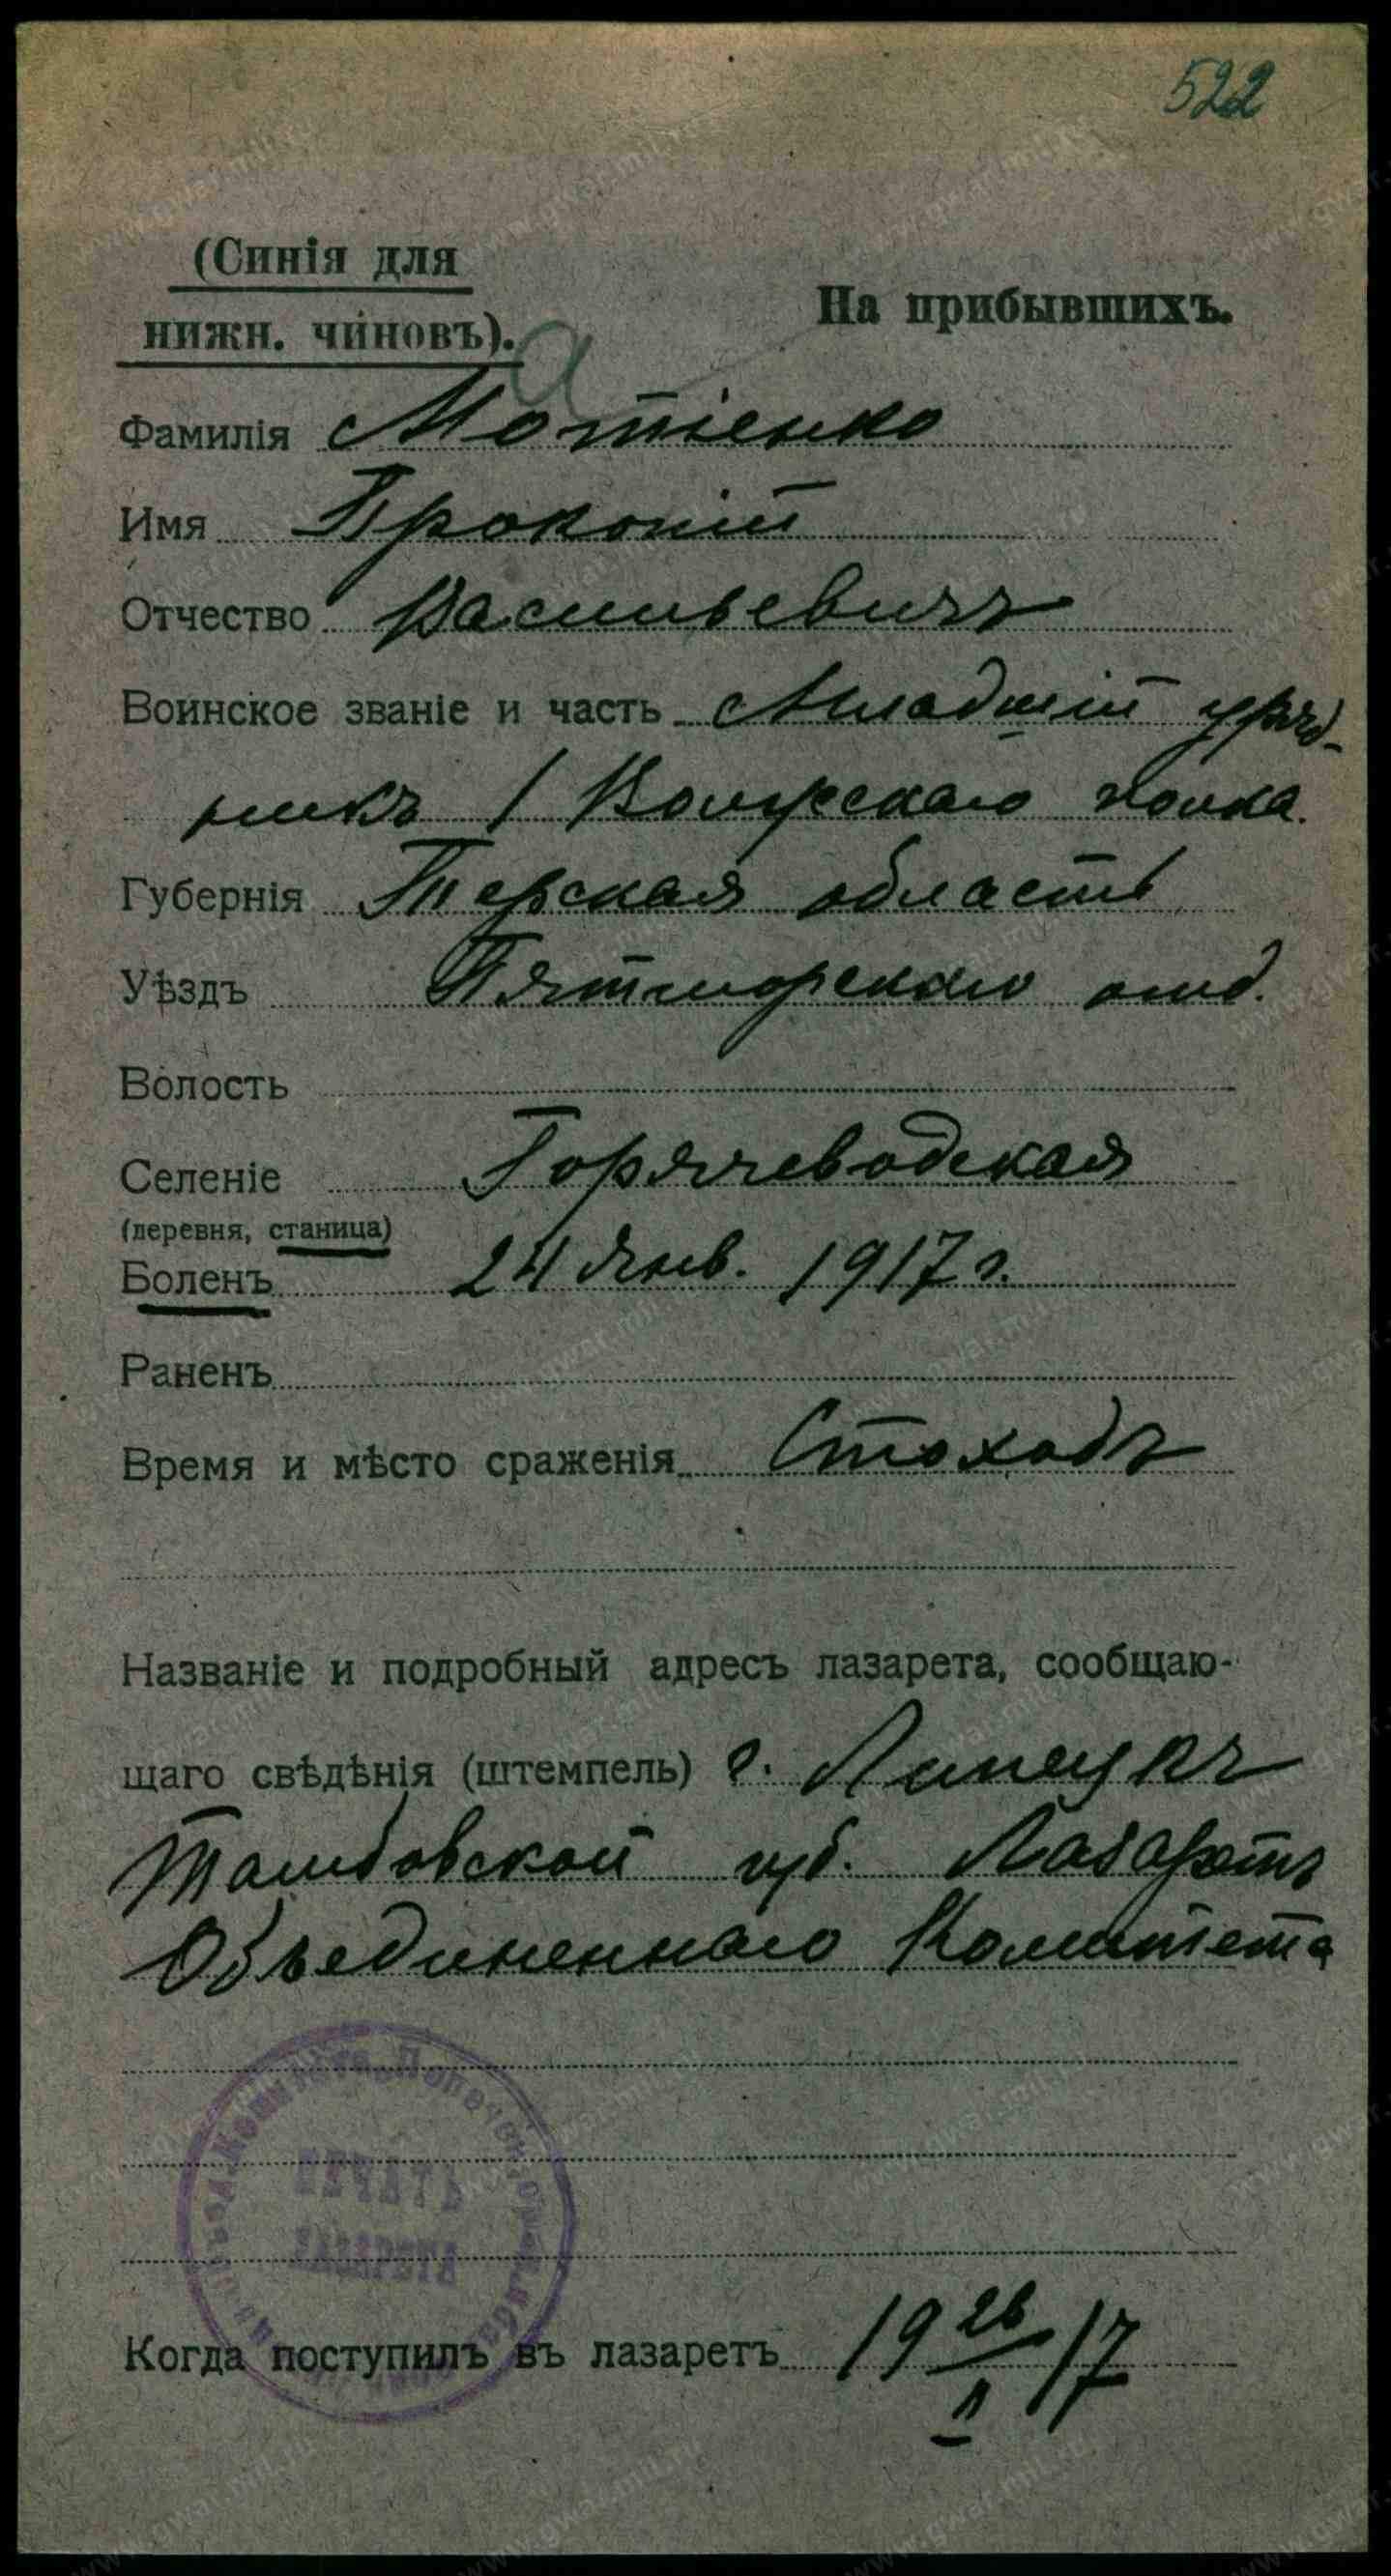 522
(Синія для
нижн. чиновъ).
На прибывшихъ.
а
Фамилія Мотіенко
Имя Прокопій
Отчество Васильевичъ
Воинское званіе и часть Младшій уряд-
никъ 1 Волгскаго полка.
Губернія Терская область
Уѣздъ Пятигорскаго отд.
Волость
Селеніе Горячеводская
(деревня, станица)
Боленъ 24 Янв. 1917 г.
Раненъ
Время и мѣсто сраженія Стоходъ
Названіе и подробный адресъ лазарета, сообщаю-
щаго свѣдѣнія (штемпель) г. Липецкъ
Тамбовской губ. Лазаретъ
Объединеннаго Комитета
ПЕЧАТЬ
Когда поступилъ въ лазаретъ 19 26/II 17
www.gwar.mil.ru